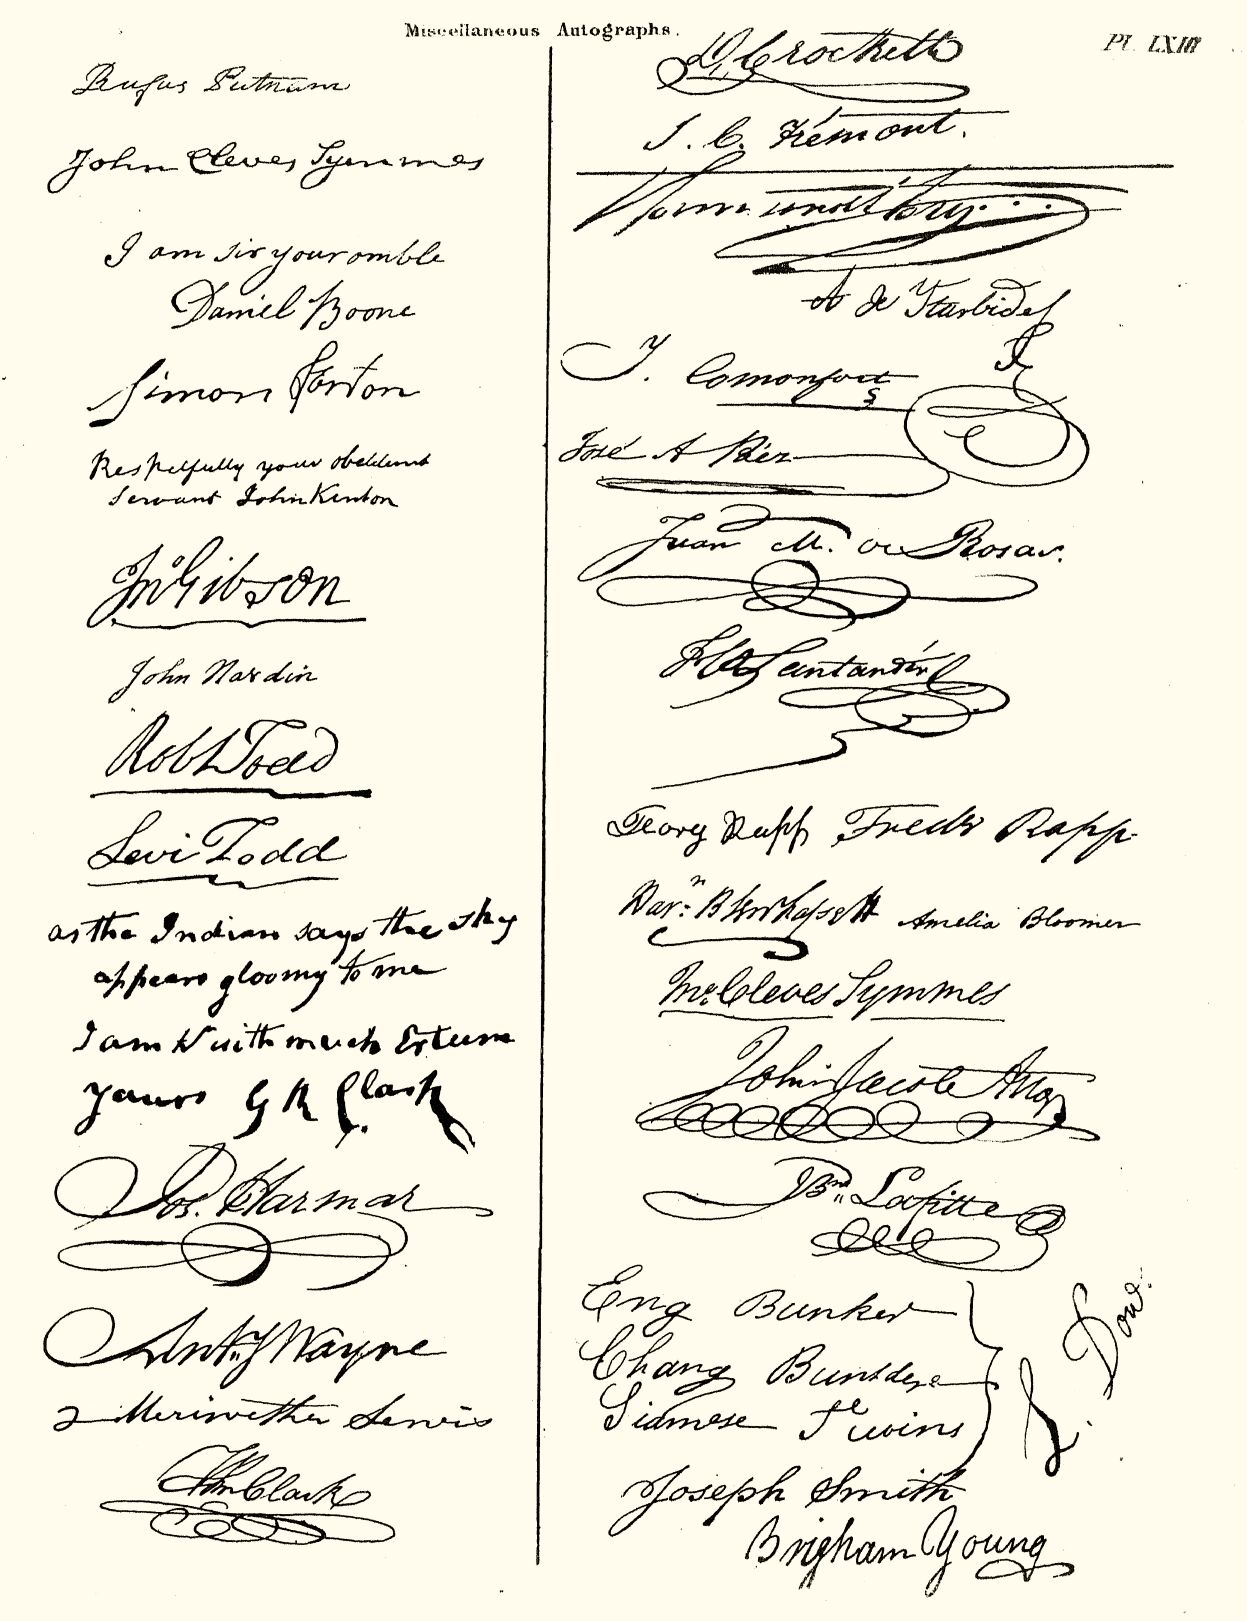 Miscellaneous Autographs.
Pl. LXIII
Rufus Putnam
John Cleves Symmes
I am sir your omble
Daniel Boone
Simon Kenton
Respelfully your obeldunt
servant John Kenton
Jno Gibson
John Hardin
Robt Todd
Levi Todd
as the Indian says the sky
appears gloomy to me
I am N with much Esteem
yours G R Clark
Jos. Harmar
Anty Wayne
Meriwether Lewis
Wm Clark
D, Crockett
J. C. Frémont.
A de Yturbide
Y. Comonfort
José A Páez
Juan M. de Rosas.
F de P Santander
Georg Rapp Fredk Rapp
Harn: Blennhassett Amelia Bloomer
Mr. Cleves Symmes
John Jacob Astor
Bn. Lafitte
Eng Bunker
Chang Bunker
Siamese Twins
L. Dow.
Joseph Smith
Brigham Young